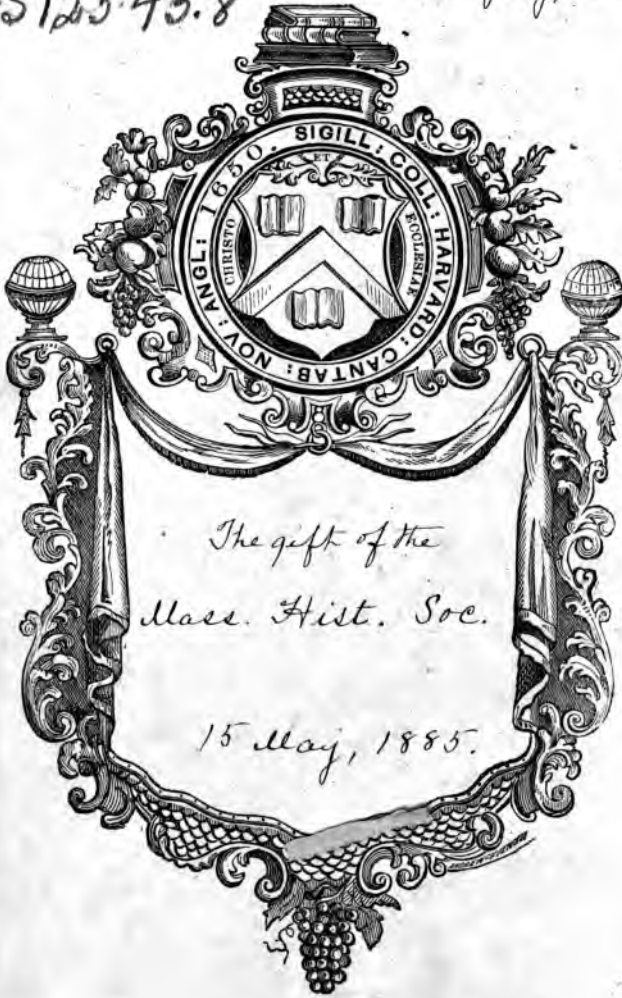 SIGILL: COLL: HARVARD: CANTAB: NOV: ANGL: 1650.
CHRISTO
ET
ECCLESIAE
The gift of the
Mass. Hist. Soc.
15 May, 1885.